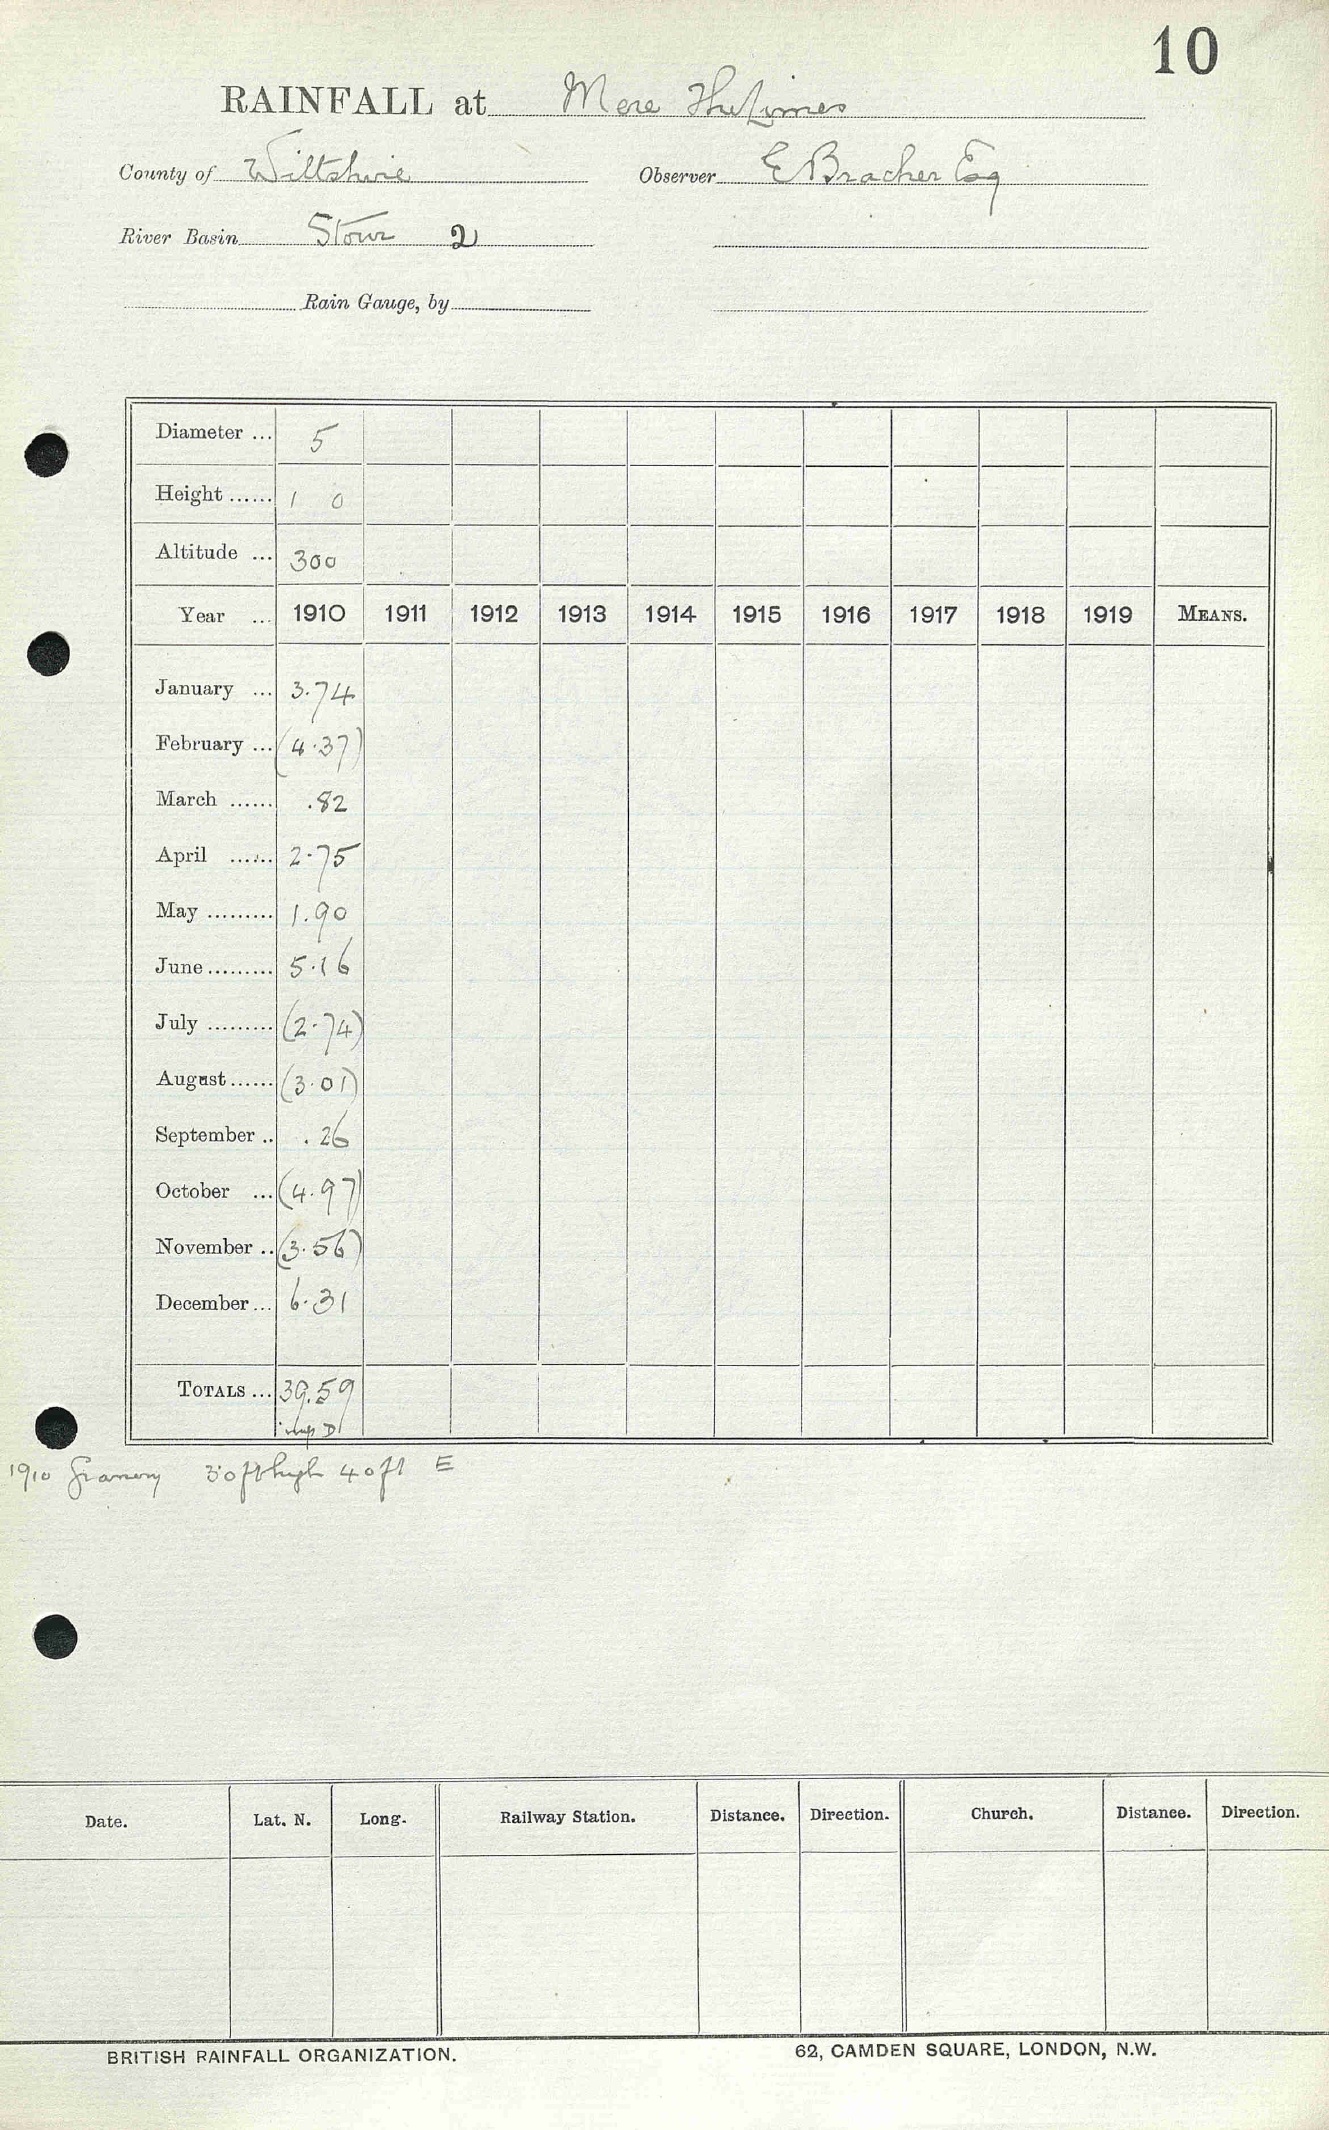 10
RAINFALL at Mere The Limes
County of Wiltshire Observer E Bracher Esq
River Basin Stour 2
Rain Gauge, by
Diameter ... 5
Height ...... 1 0
Altitude ... 300
Year ... 1910 1911 1912 1913 1914 1915 1916 1917 1918 1919 MEANS.
January ... 3.74
February ... (4.37)
March ...... .82
April ...... 2.75
May ......... 1.90
June ......... 5.16
July ......... (2.74)
August ...... (3.01)
September .. .26
October ... (4.97)
November .. (3.56)
December ... 6.31
TOTALS ... 39.59
1910 Granary 30 ft high 40 ft E
Date. Lat. N. Long. Railway Station. Distance. Direction. Church. Distance. Direction.
BRITISH RAINFALL ORGANIZATION. 62, CAMDEN SQUARE, LONDON, N.W.